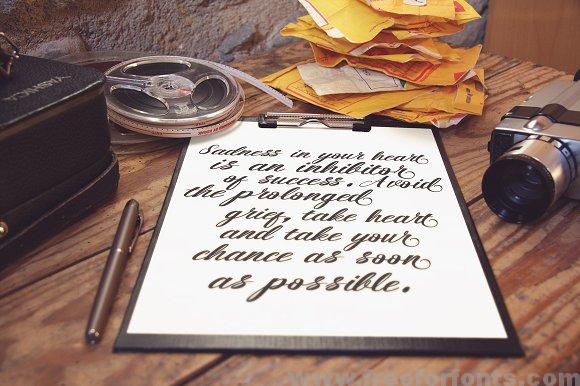 YASHICA
Sadness in your heart
is an inhibitor
of success. Avoid
the prolonged
grief, take heart
and take your
chance as soon
as possible.